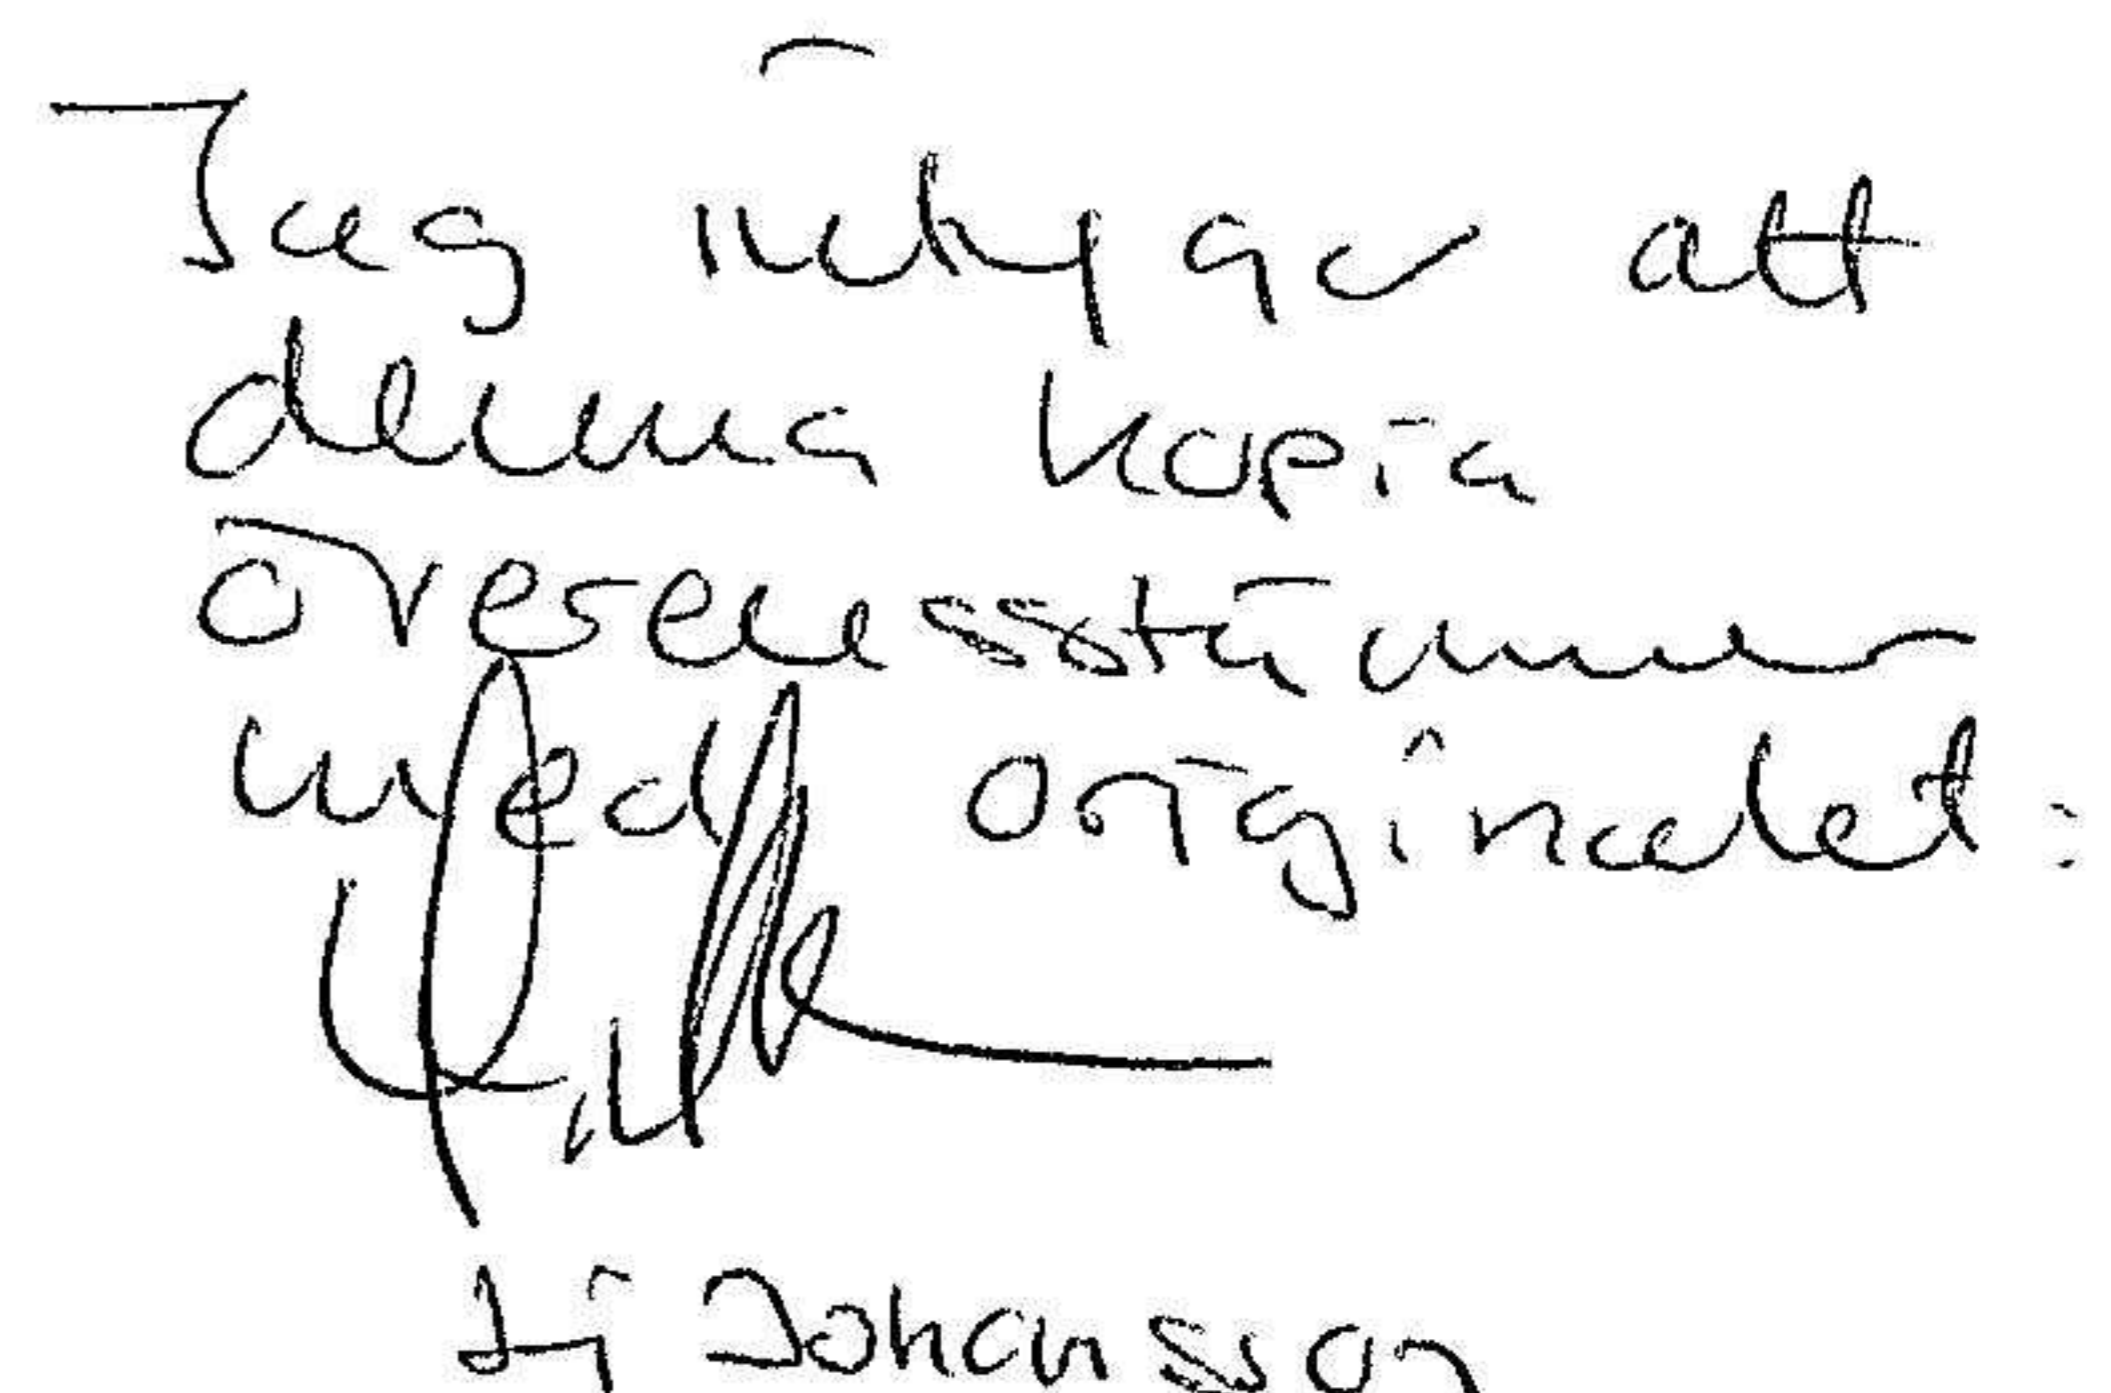 Jag intygar att
denna kopia
överensstämmer
med originalet:
Johansson